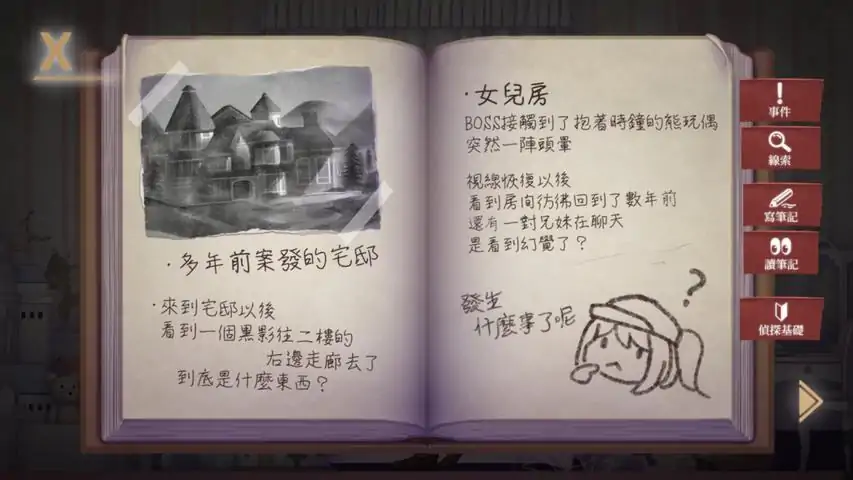 X
·多年前案發的宅邸
·來到宅邸以後
看到一個黑影往二樓的
右邊走廊去了
到底是什麼東西？
·女兒房
BOSS接觸到了抱着時鐘的熊玩偶
突然一陣頭暈
視線恢復以後
看到房间彷彿回到了數年前
還有一對兄妹在聊天
是看到幻覺了？
發生
什麼事了呢
?
事件
線索
寫筆記
讀筆記
偵探基礎